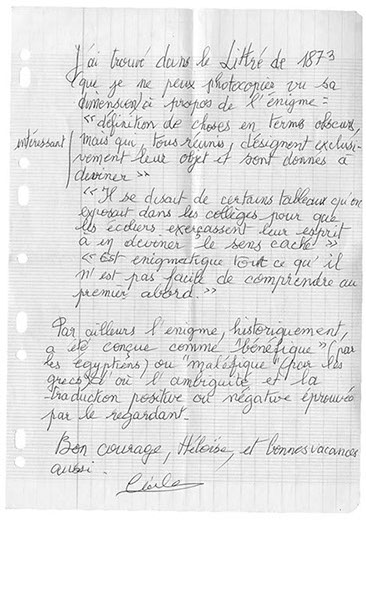 J'ai trouvé dans le Littré de 1873
que je ne peux photocopier vu sa
dimension / à propos de l'énigme =
« définition de choses en terms obscurs,
intéressant mais qui, tous réunis, désignent exclusi-
vement leur objet et sont donnés à
deviner »
« Il se disait de certains tableaux qu'on
exposait dans les collèges pour que
les écoliers exerçassent leur esprit
à en deviner le sens caché »
« est énigmatique tout ce qu'il
n'est pas facile de comprendre au
premier abord. »
Par ailleurs l'énigme, historiquement,
a été conçue comme "bénéfique" (par
les égyptiens) ou "maléfique" (par les
grecs) d'où l'ambiguité et la
traduction positive ou négative éprouvée
par le regardant.
Bon courage, Héloïse, et bonnes vacances
aussi.
Cécile